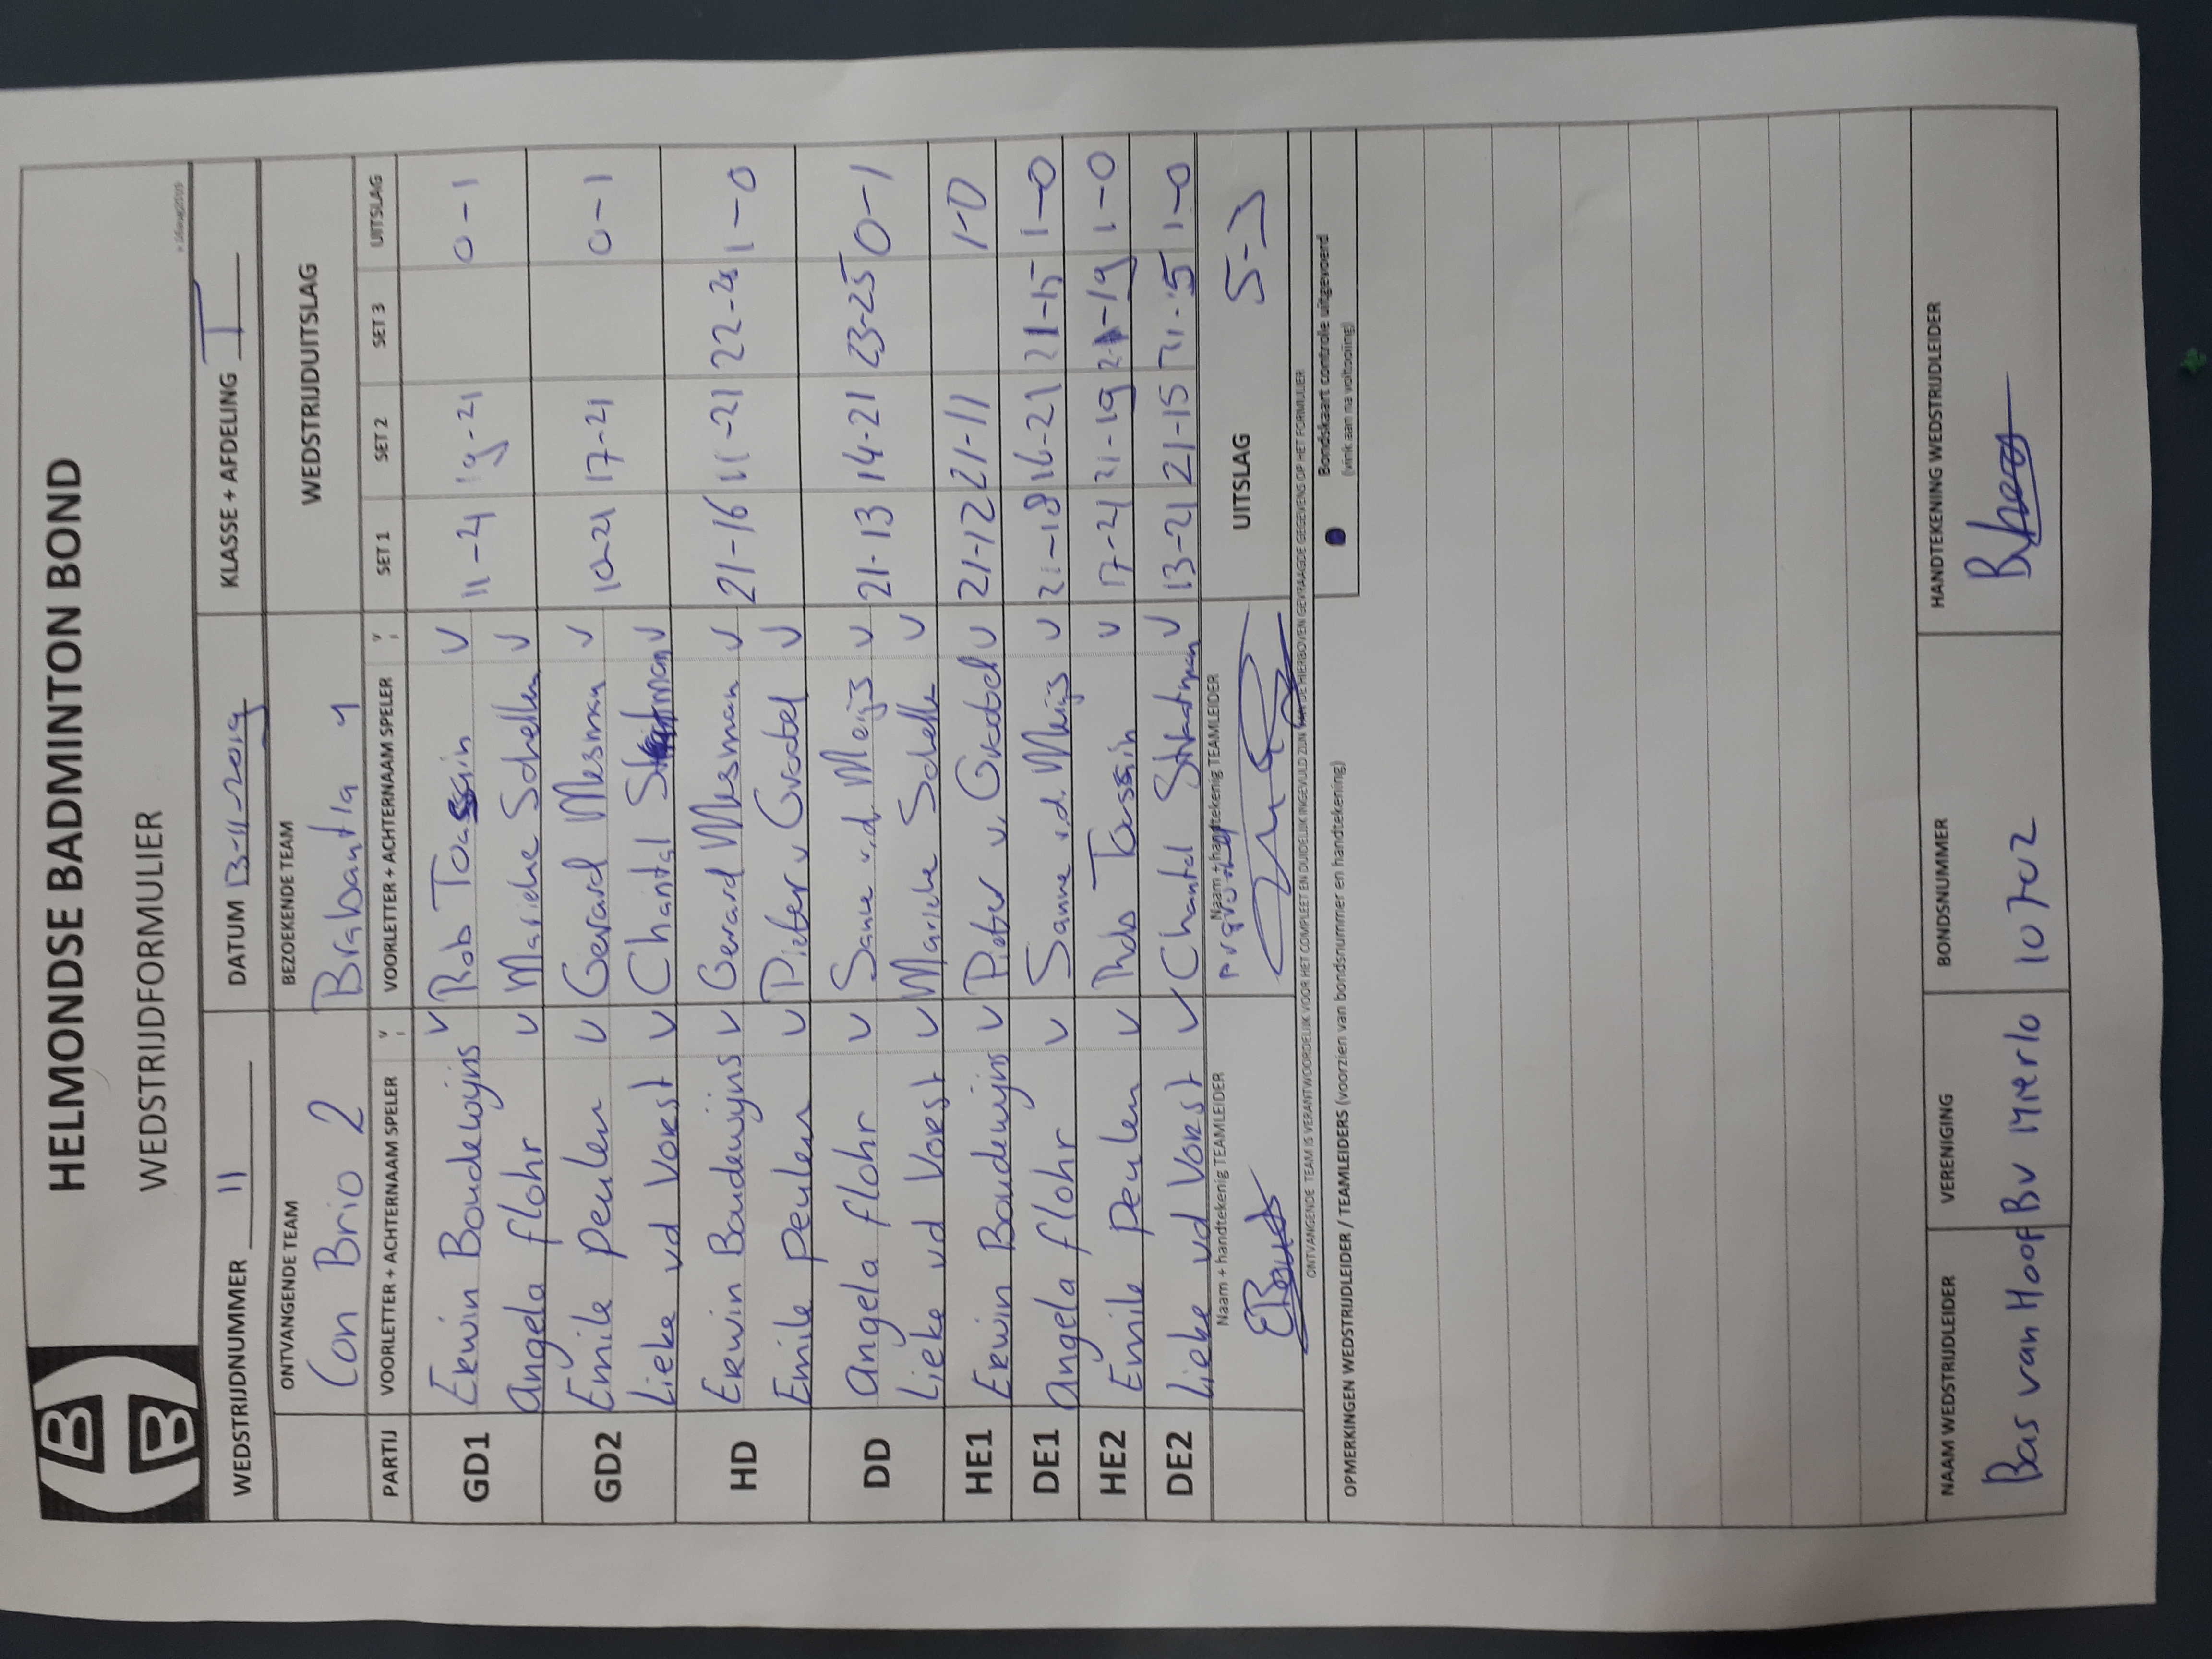 HELMONDSE BADMINTON BOND
WEDSTRIJDFORMULIER
WEDSTRIJDNUMMER 11 DATUM 13-11-2019 KLASSE + AFDELING I
ONTVANGENDE TEAM BEZOEKENDE TEAM WEDSTRIJDUITSLAG
Con Brio 2 Brabantia 1
PARTIJ VOORLETTER + ACHTERNAAM SPELER V VOORLETTER + ACHTERNAAM SPELER V SET 1 SET 2 SET 3 UITSLAG
GD1 Erwin Boudewijns V Rob Toussin V 11-21 19-21 0-1
Angela flohr V Marieke Schellen V
GD2 Emile Peulen V Gerard Mesman V 10-21 17-21 0-1
Lieke vd Vorst V Chantal Straatman V
HD Erwin Boudewijns V Gerard Mesman V 21-16 11-21 22-20 1-0
Emile Peulen V Pieter v Grootel V
DD Angela flohr V Sanne v.d. Meijs V 21-13 14-21 23-25 0-1
Lieke vd Vorst V Marieke Schelle V
HE1 Erwin Boudewijns V Pieter v. Grootel V 21-12 21-11 1-0
DE1 Angela flohr V Sanne v.d. Meijs V 21-18 16-21 21-15 1-0
HE2 Emile Peulen V Rob Toussin V 17-21 21-19 21-19 1-0
DE2 Lieke vd Vorst V Chantal Straatman V 13-21 21-15 21-15 1-0
Naam + handtekenig TEAMLEIDER Naam + handtekenig TEAMLEIDER UITSLAG 5-3
ONTVANGENDE TEAM IS VERANTWOORDELIJK VOOR HET COMPLEET EN DUIDELIJK INGEVULD ZIJN VAN DE HIERBOVEN GEVRAAGDE GEGEVENS OP HET FORMULIER
Bondskaart controle uitgevoerd
(vink aan na voltooiing)
OPMERKINGEN WEDSTRIJDLEIDER / TEAMLEIDERS (voorzien van bondsnummer en handtekening)
NAAM WEDSTRIJDLEIDER VERENIGING BONDSNUMMER HANDTEKENING WEDSTRIJDLEIDER
Bas van Hoof BV Mierlo 10702